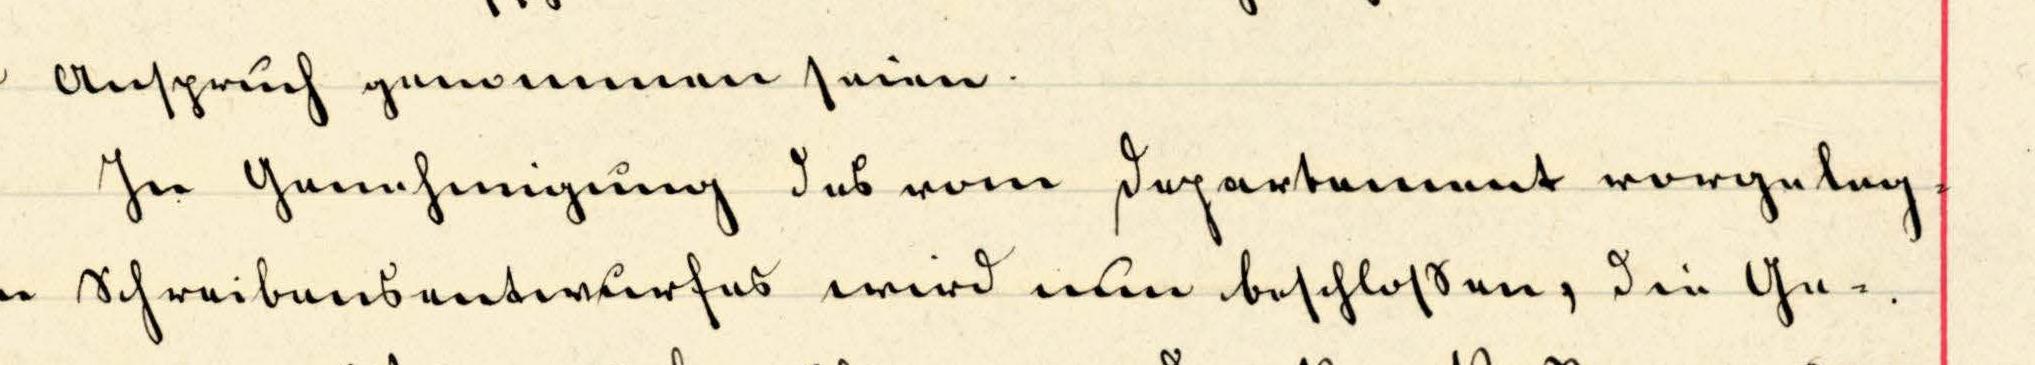 Anspruch genommen seien.
In Genehmigung des vom Departement vorgeleg-
Schreibensentwurfes wird nun beschlossen, die Ge-